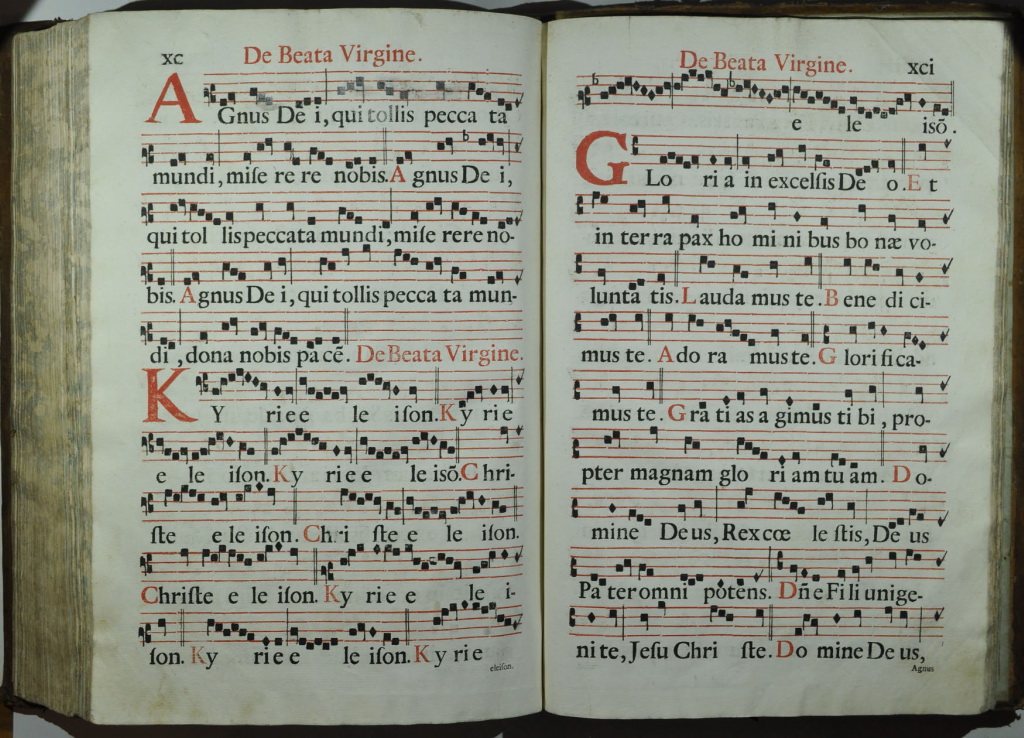 xc De Beata Virgine.
AGnus De i, qui tollis pecca ta
mundi, miſe re re nobis. A gnus De i,
qui tol lis peccata mundi, miſe rere no-
bis. Agnus De i, qui tollis pecca ta mun-
di, dona nobis pacẽ. De Beata Virgine.
KY ri e e le iſon. Ky rie
e le iſon. Ky ri e e le isõ. Chri-
ſte e le iſon. Chri ſte e le iſon.
Chriſte e le iſon. Ky ri e e le i-
ſon. Ky ri e e le iſon. Ky rie
eleiſon.
De Beata Virgine. xci
e le isõ.
GLo ri a in excelſis De o. Et
in ter ra pax ho mi ni bus bo næ vo-
lunta tis. Lauda mus te. Bene di ci-
mus te. Ado ra mus te. Glori fi ca-
mus te. Gra ti as a gimus ti bi, pro-
pter magnam glo ri am tu am. Do-
mine De us, Rex cœ le ſtis, De us
Pa ter omni potens. Dñe Fi li unige-
ni te, Jeſu Chri ſte. Do mine De us,
Agnus